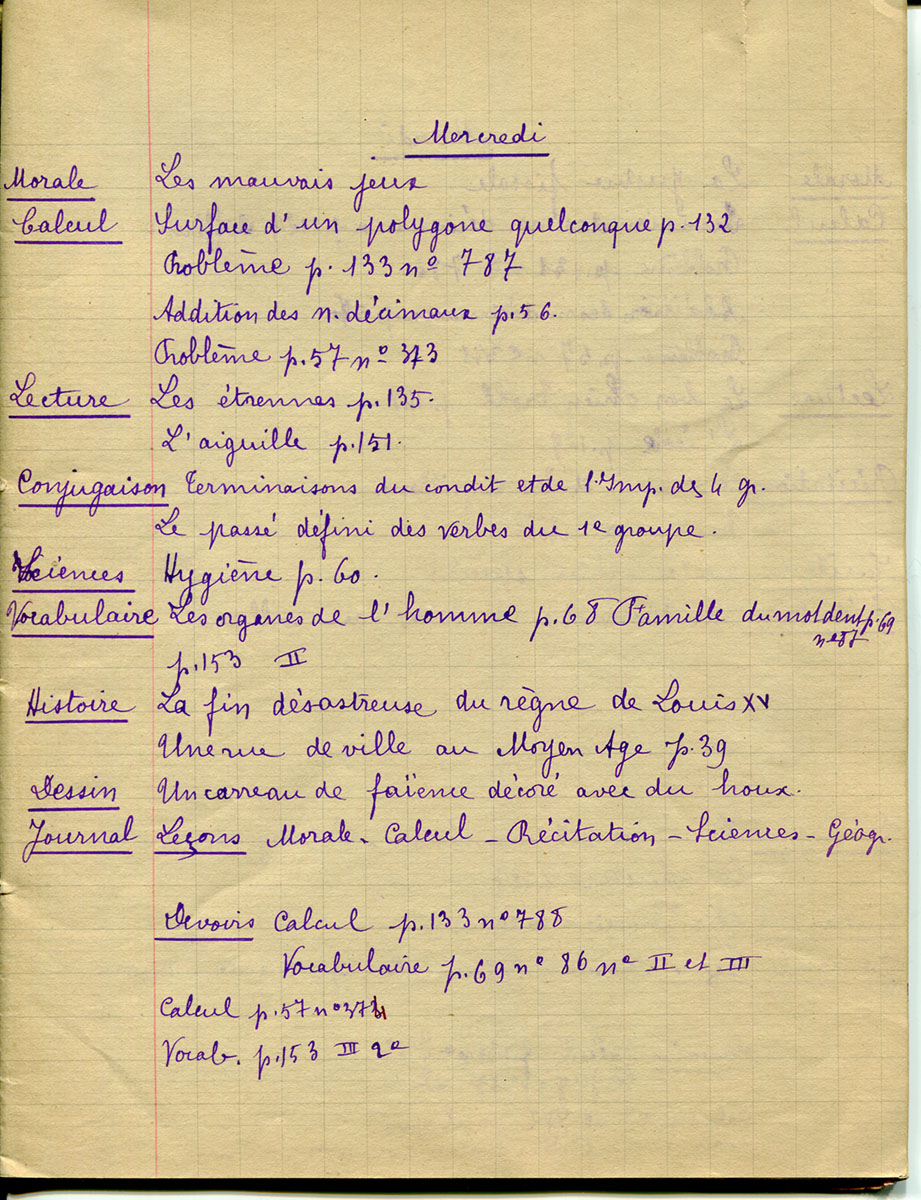 Mercredi
Morale Les mauvais jeux
Calcul Surface d'un polygone quelconque p.132
Problème p. 133 nº 787
Addition des n. décimaux p.56.
Problème p.57 nº 373
Lecture Les étrennes p.135.
L'aiguille p.151.
Conjugaison Terminaisons du condit et de l'Imp. des 4 gr.
Le passé défini des verbes du 1e groupe.
Sciences Hygiène p. 60.
Vocabulaire Les organes de l'homme p.68 Famille du mot dent p.69
p.153 II
Histoire La fin désastreuse du règne de Louis XV
Une rue de ville au Moyen Age p.39
Dessin Un carreau de faïence décoré avec du houx.
Journal Leçons Morale - Calcul - Récitation - Sciences - Géogr.
Devoirs Calcul p.133 nº 788
Vocabulaire p.69 nº 86 nº II et III
Calcul p.57 nº 374
Vocab. p.153 III 2e